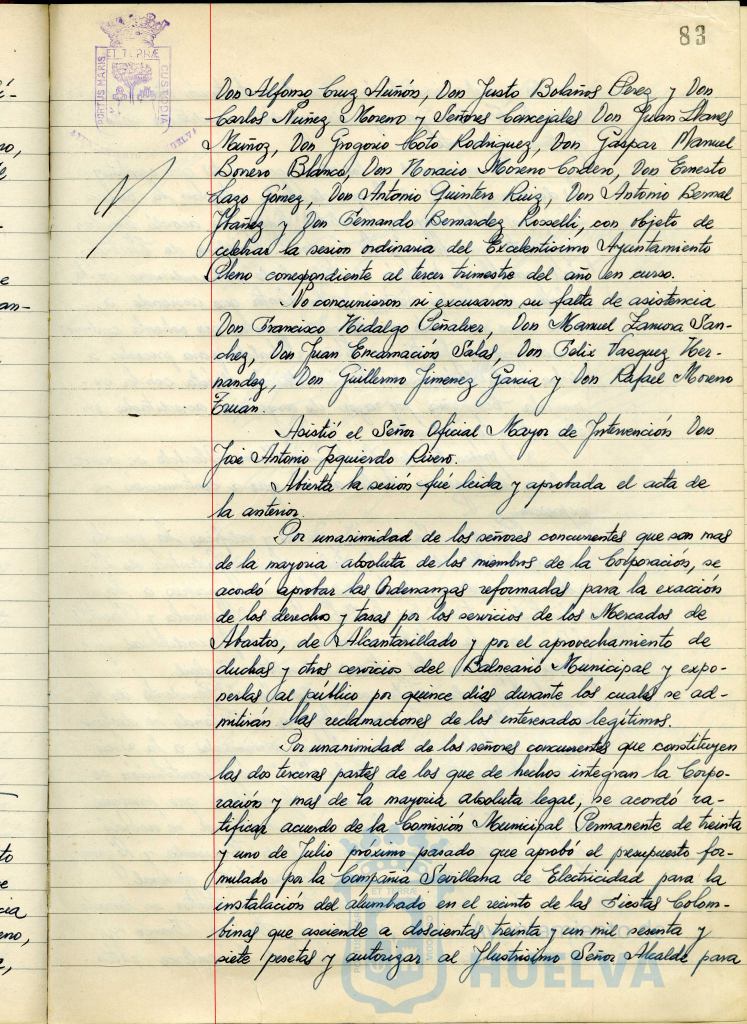 83
PORTUS MARIS
ET TERRÆ
CUSTODIA
Don Alfonso Cruz Auñón, Don Justo Bolaños Perez y Don
Carlos Núñez Moreno y Señores Concejales Don Juan Llanes
Muñoz, Don Grogorio Soto Rodriguez, Don Gaspar Manuel
Bonero Blanco, Don Horacio Moreno Cordero, Don Ernesto
Lazo Gómez, Don Antonio Quintero Ruiz, Don Antonio Bernal
Ybáñez y Don Fernando Bernardez Rosselli, con objeto de
celebrar la sesion ordinaria del Excelentisimo Ayuntamiento
Pleno correspondiente al tercer trimestre del año en curso.
No concurrieron ni excusaron su falta de asistencia
Don Francisco Hidalgo Peñalver, Don Manuel Zamora San-
chez, Don Juan Encarnación Salas, Don Felix Vazquez Her-
nandez, Don Guillermo Jimenez Garcia y Don Rafael Moreno
Asistió el Señor Oficial Mayor de Intervención Don
José Antonio Jzquierdo Rivero.
Abierta la sesión fué leida y aprobada el acta de
la anterior.
Por unanimidad de los señores concurrentes que son mas
de la mayoria absoluta de los miembros de la Corporación, se
acordó aprobar las Ordenanzas reformadas para la exacción
de los derechos y tasas por los servicios de los Mercados de
Abastos, de Alcantarillado y por el aprovechamiento de
duchas y otros servicios del Balneario Municipal y expo-
nerlas al público por quince dias durante los cuales se ad-
mitirán las reclamaciones de los interesados legítimos.
Por unanimidad de los señores concurrentes que constituyen
las dos terceras partes de los que de hechos integran la Corpo-
ración y mas de la mayoria absoluta legal, se acordó ra-
tificar acuerdo de la Comisión Municipal Permanente de treinta
y uno de Julio próximo pasado que aprobó el presupuesto for-
mulado por la Compañia Sevillana de Electricidad para la
instalación del alumbrado en el recinto de las Fiestas Colom-
binas que asciende a doscientas treinta y un mil sesenta y
siete pesetas y autorizar al Jlustrisimo Señor Alcalde para
HUELVA